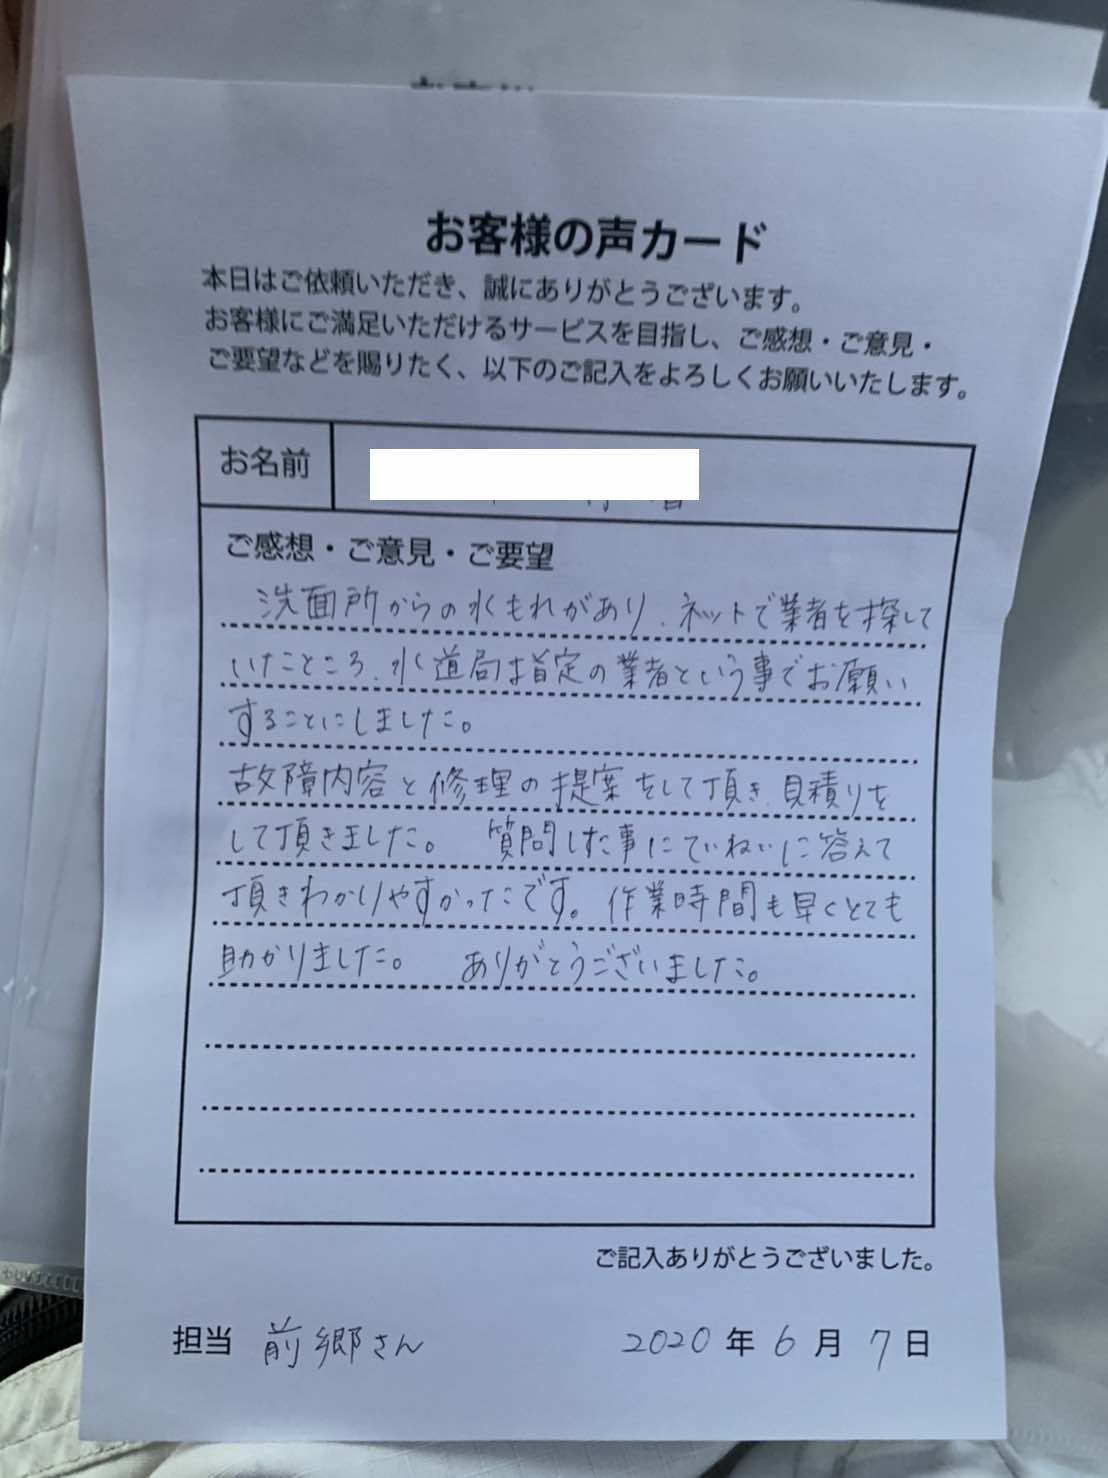 お客様の声カード
本日はご依頼いただき、誠にありがとうございます。
お客様にご満足いただけるサービスを目指し、ご感想・ご意見・
ご要望などを賜りたく、以下のご記入をよろしくお願いいたします。
お名前
ご感想・ご意見・ご要望
洗面所からの水もれがあり、ネットで業者を探して
いたところ、水道局指定の業者という事でお願い
することにしました。
故障内容と修理の提案をして頂き、見積りを
して頂きました。 質問した事にていねいに答えて
頂きわかりやすかったです。作業時間も早くとても
助かりました。 ありがとうございました。
ご記入ありがとうございました。
担当 前郷さん 2020年6月7日